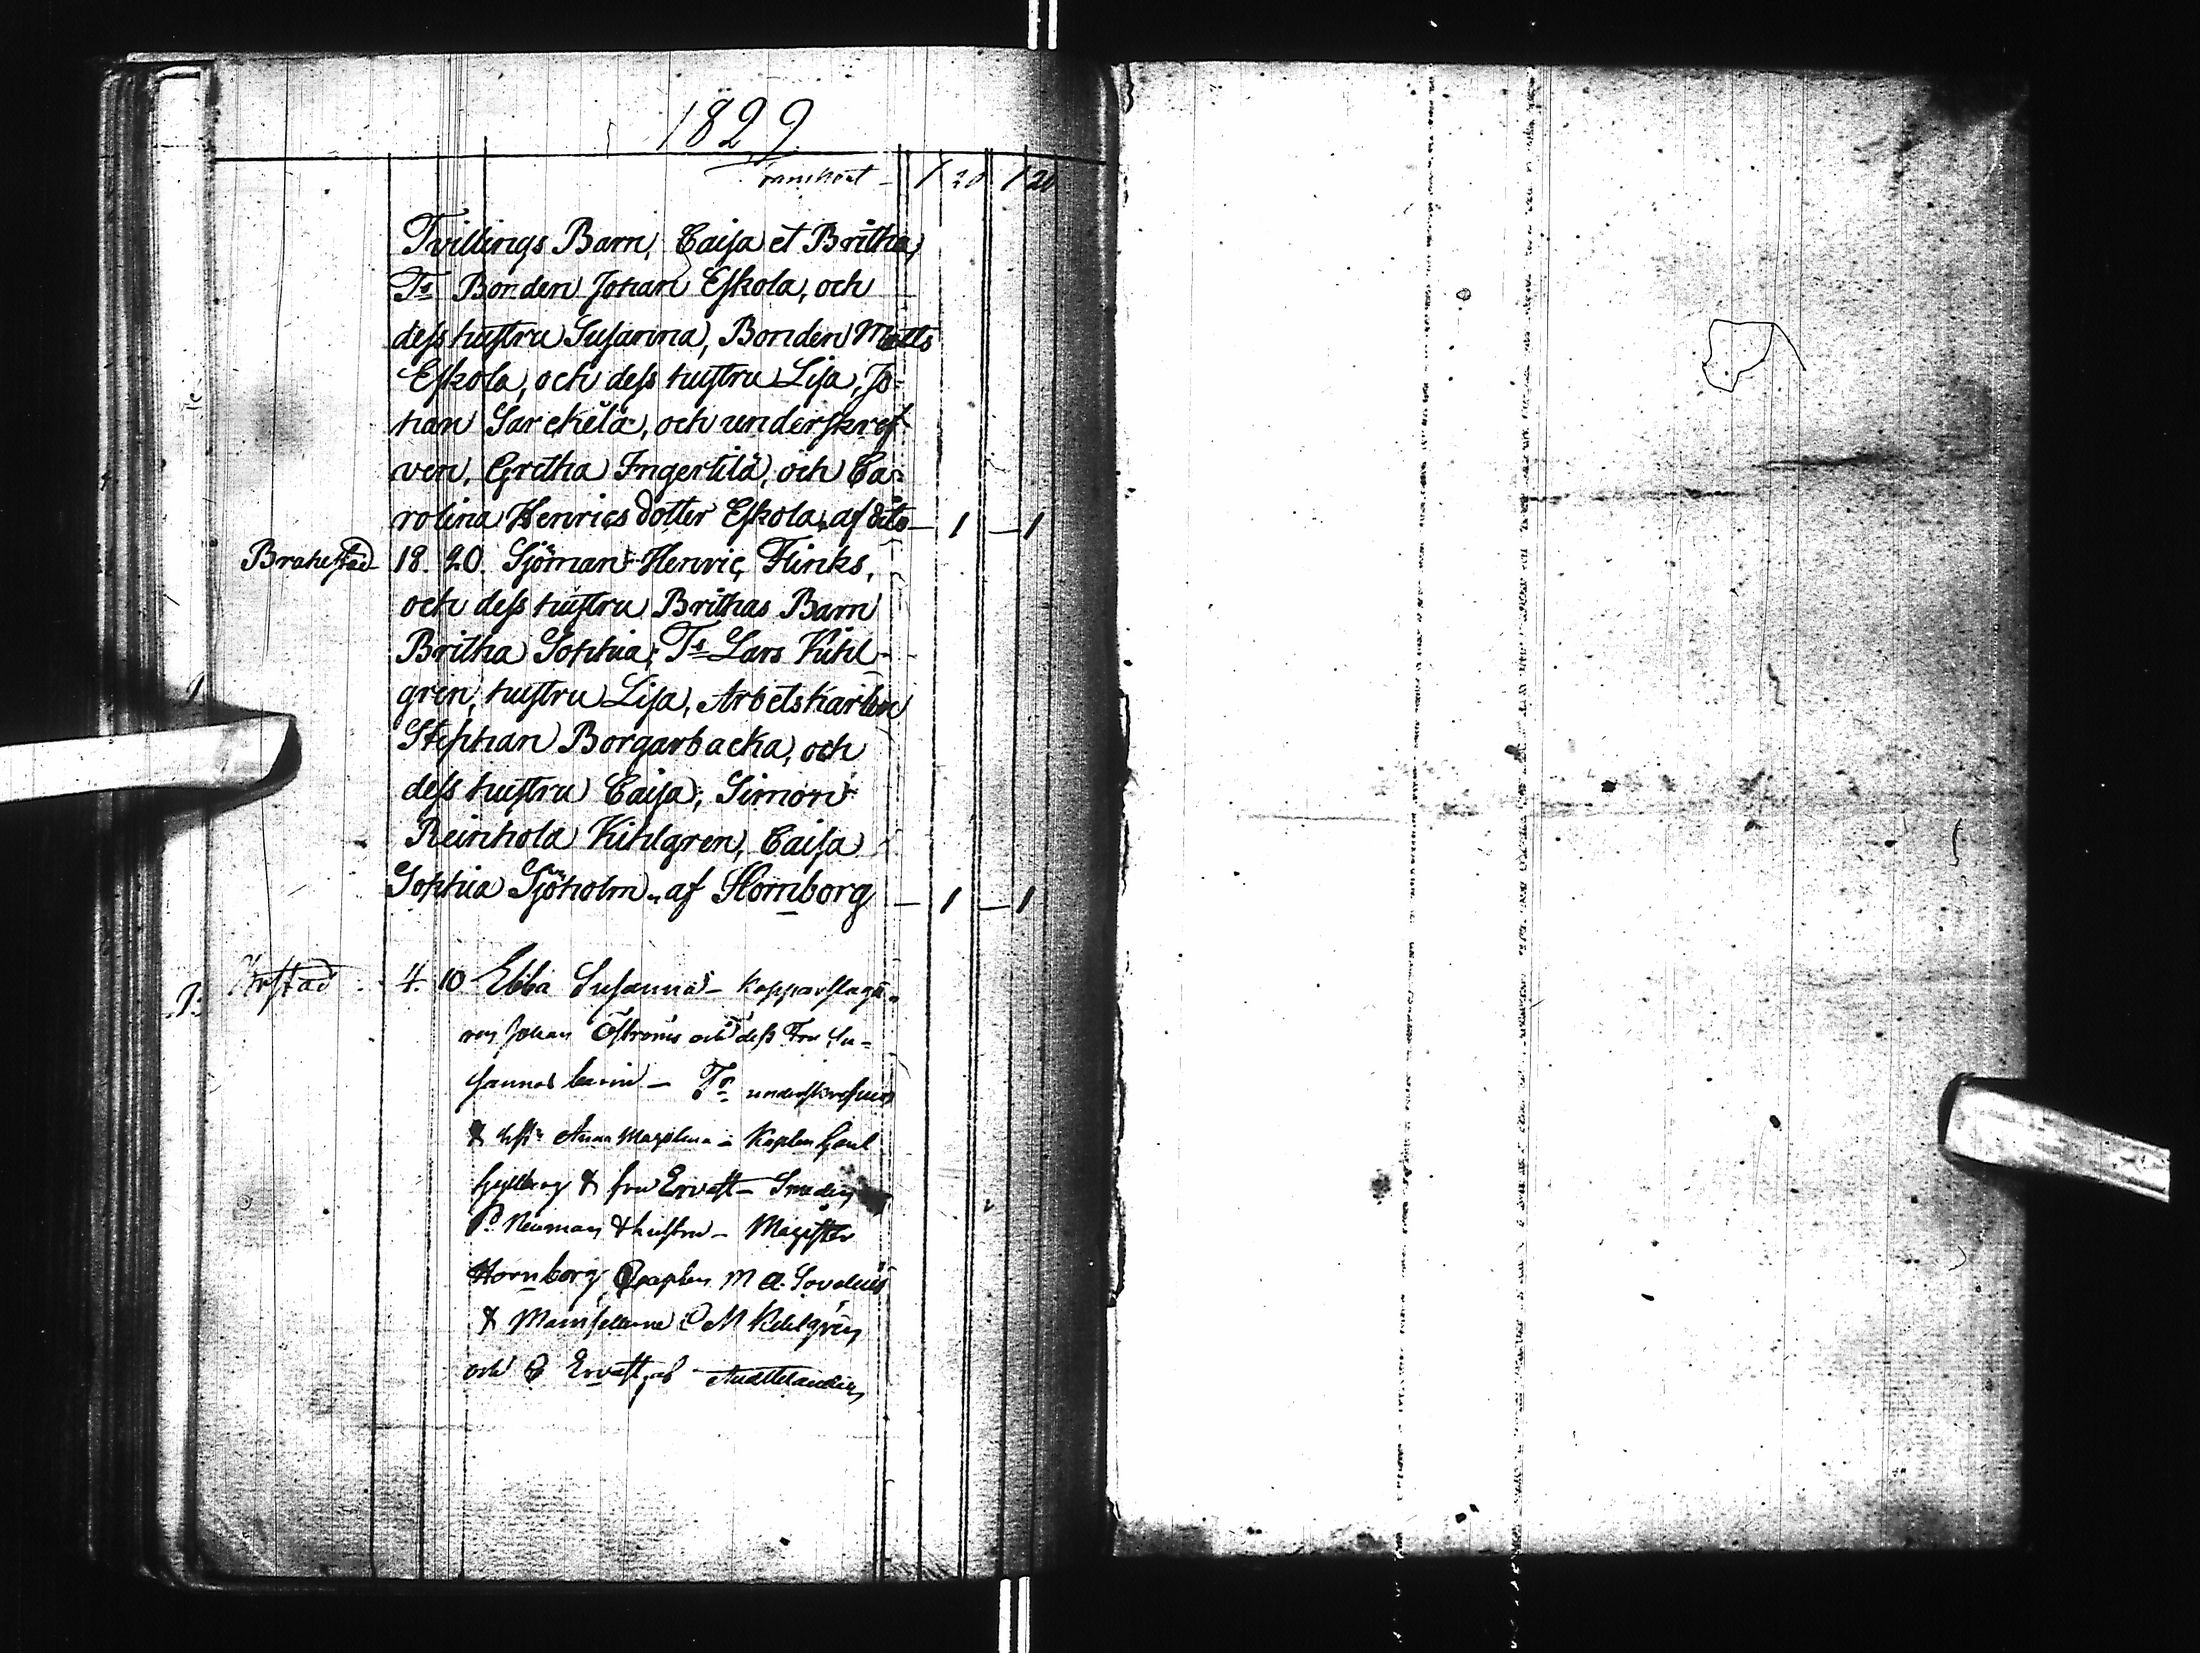 1829
Transport — 1 20 1 20
Tvillings Barn, Caisa et Britha,
Ts Bonden Johan Eskola, och
dess hustru Susanna, Bonden Matts
Eskola, och dess hustru Lisa, Jo-
han Sarckelä, och underskref-
ven, Gretha Ingertilä, och Ca-
rolina Henrics dotter Eskola, af dito — 1 — 1
Brahestad 18. 20. Sjöman Henric Flinks,
och dess hustru Brithas Barn
Britha Sophia; Ts Lars Kihl-
gren, hustru Lisa, Arbetskarlen
Stephan Borgarbacka, och
dess hustru Caisa; Simon
Reinhold Kihlgren, Caisa
Sophia Sjöholm. af Hornborg — 1 — 1
4. 10 Ebba Susanna — Kopparslaga-
ren Johan Öströms och dess Fru Su-
sannas barn — Ts underskrefven
& Anna Magdlena — Kapten
& fru Ervast — Smeden
P. Neuman & hustru — Magister
Hornborg, M A. Sovelius
& Mamsellerne C M Kihlgren
och Ervast, af